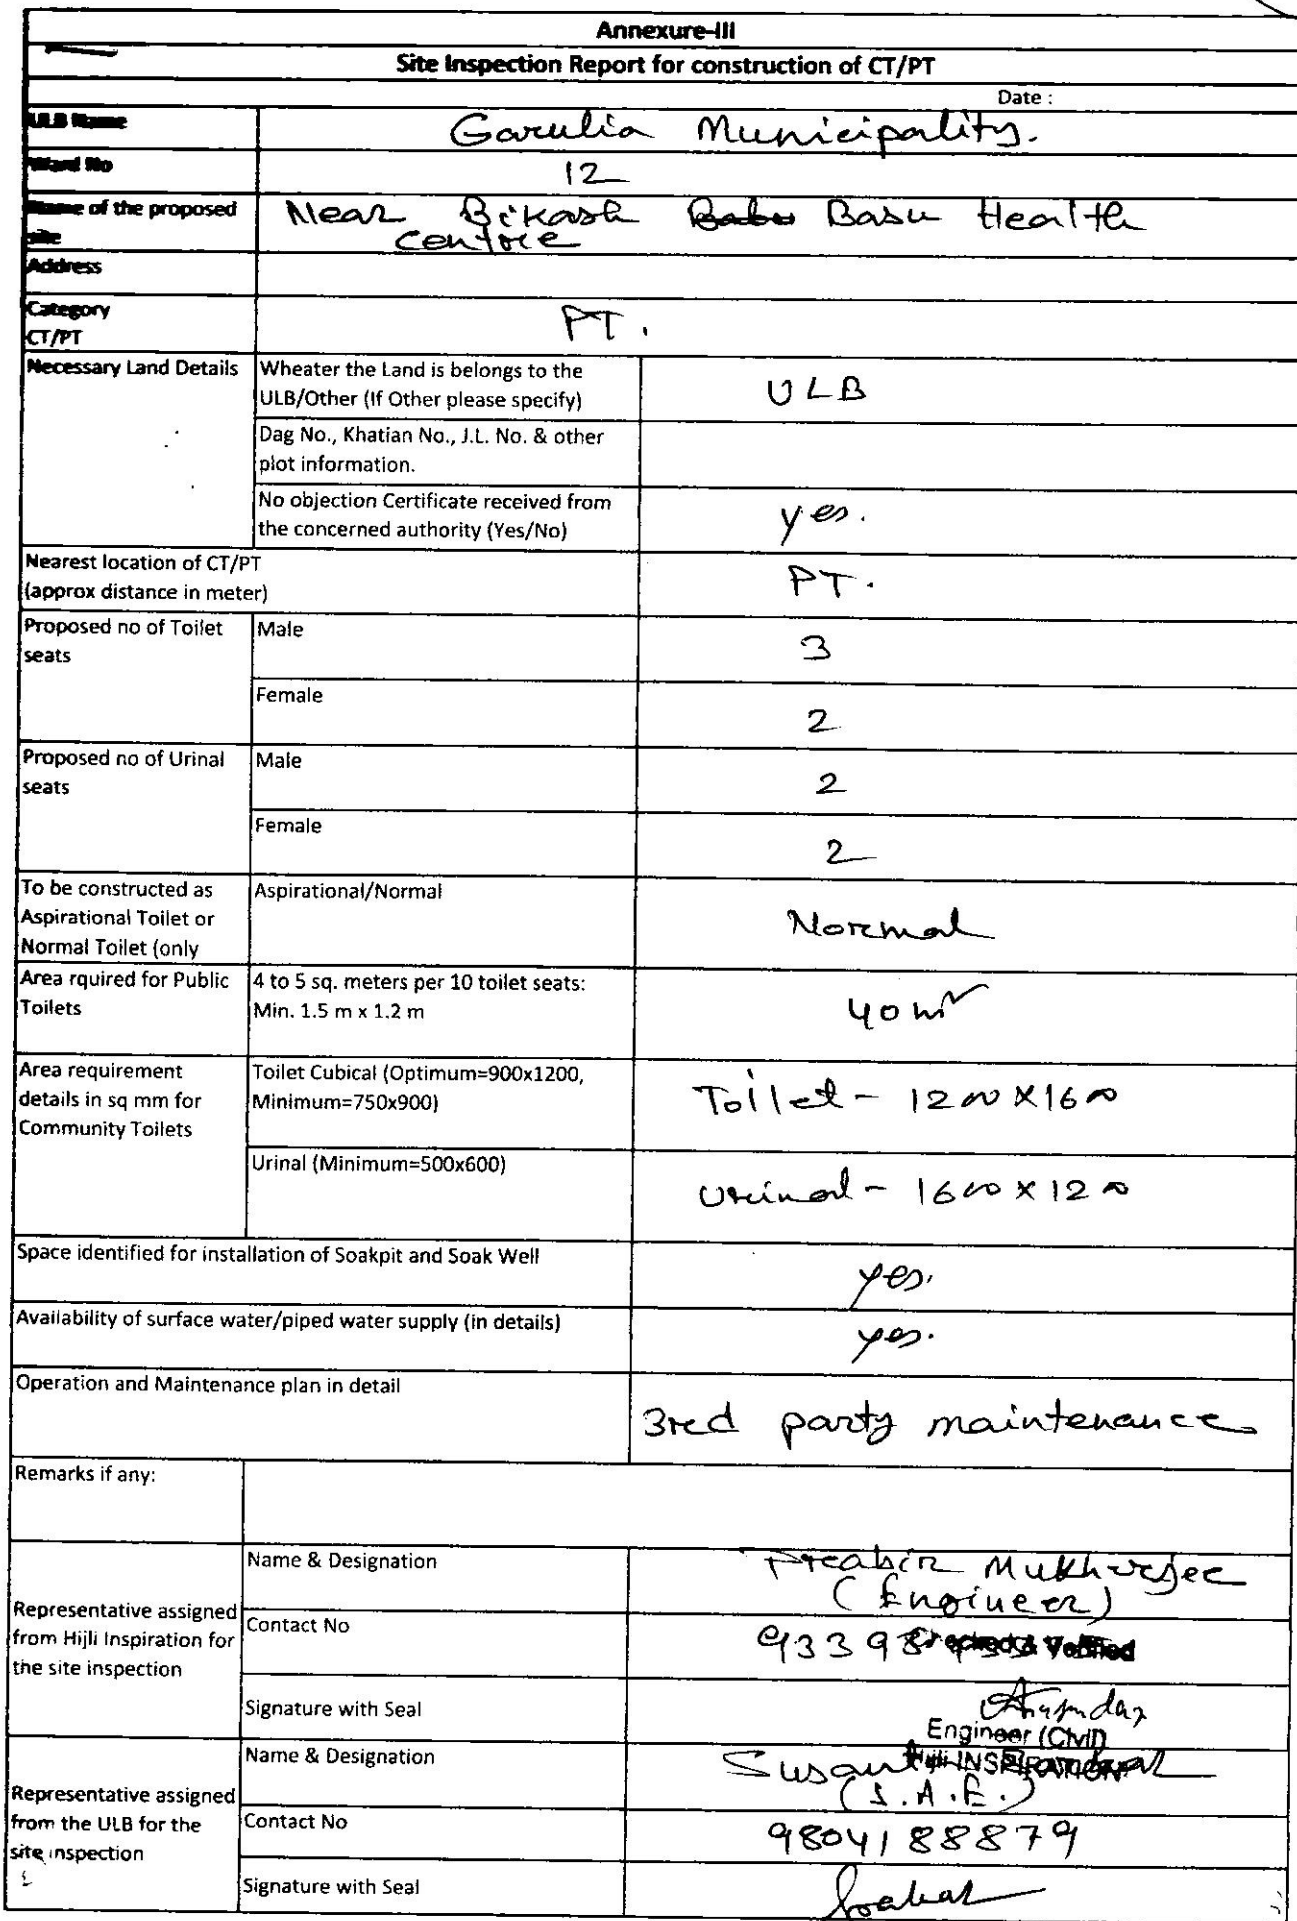 Annexure-III
Site Inspection Report for construction of CT/PT
Date :
ULB Name Garulia Municipality.
Ward No 12
Name of the proposed site Near Bikash Babu Basu Health
Centre
Address
Category
CT/PT PT.
Necessary Land Details
Wheater the Land is belongs to the
ULB/Other (If Other please specify) ULB
Dag No., Khatian No., J.L. No. & other
plot information.
No objection Certificate received from
the concerned authority (Yes/No) yes.
Nearest location of CT/PT
(approx distance in meter) PT.
Proposed no of Toilet
seats
Male 3
Female 2
Proposed no of Urinal
seats
Male 2
Female 2
To be constructed as
Aspirational Toilet or
Normal Toilet (only
Aspirational/Normal Normal
Area rquired for Public
Toilets
4 to 5 sq. meters per 10 toilet seats:
Min. 1.5 m x 1.2 m
40 m²
Area requirement
details in sq mm for
Community Toilets
Toilet Cubical (Optimum=900x1200,
Minimum=750x900)
Toilet - 1200 X 1600
Urinal (Minimum=500x600)
Urinal - 1600 X 1200
Space identified for installation of Soakpit and Soak Well yes.
Availability of surface water/piped water supply (in details) yes.
Operation and Maintenance plan in detail
3red party maintenance
Remarks if any:
Representative assigned
from Hijli Inspiration for
the site inspection
Name & Designation
Prabir Mukherjee
(Engineer)
Contact No
93398
Checked & Verified
Signature with Seal
Engineer (Civil)
Hijli INSPIRATION
Representative assigned
from the ULB for the
site inspection
Name & Designation
(S.A.E.)
Contact No
9804188879
Signature with Seal